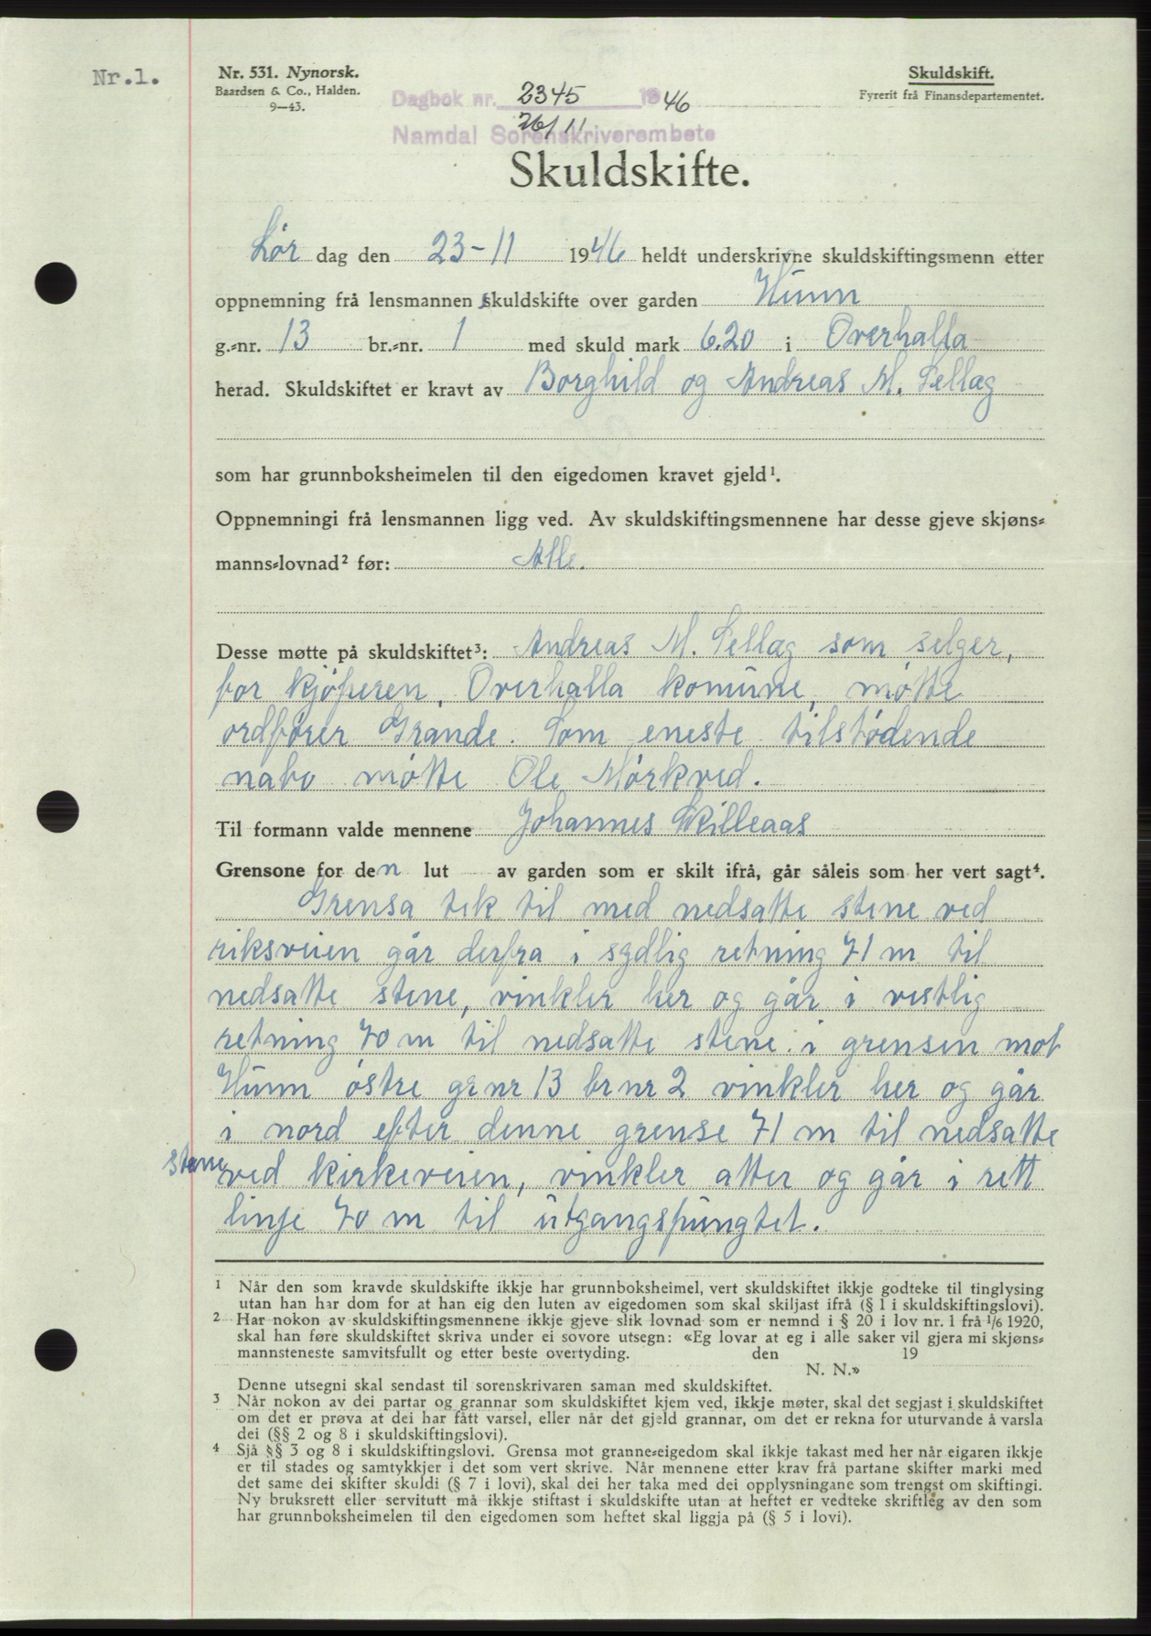 Nr.1.
Nr. 531. Nynorsk.
Baardsen & Co., Halden.
9—43.
Skuldskift.
Fyrerit frå Finansdepartementet.
Dagbok nr. 2345 1946
26/11
Namdal Sorenskriverembete
Skuldskifte.
Lør dag den 23-11 1946 heldt underskrivne skuldskiftingsmenn etter
oppnemning frå lensmannen skuldskifte over garden Hunn
g.=nr. 13 br.=nr. 1 med skuld mark 6.20 i Overhalla
herad. Skuldskiftet er kravt av Borghild og Andreas M. Sellæg
som har grunnboksheimelen til den eigedomen kravet gjeld¹.
Oppnemningi frå lensmannen ligg ved. Av skuldskiftingsmennene har desse gjeve skjøns=
manns=lovnad² før: Alle.
Desse møtte på skuldskiftet³: Andreas M. Sellæg som selger,
for kjøperen, Overhalla komune, møtte
ordfører Grande. Som eneste tilstødende
nabo møtte Ole Mørkved.
Til formann valde mennene Johannes Skilleaas
Grensone for den lut av garden som er skilt ifrå, går såleis som her vert sagt⁴.
Grensa tek til med nedsatte stene ved
riksveien går derfra i sydlig retning 71 m til
nedsatte stene, vinkler her og går i vestlig
retning 70 m til nedsatte stene i grensen mot
Hunn østre gr nr 13 br nr 2 vinkler her og går
i nord efter denne grense 71 m til nedsatte
stene ved kirkeveien, vinkler atter og går i rett
linje 70 m til utgangspungtet.
1 Når den som kravde skuldskifte ikkje har grunnboksheimel, vert skuldskiftet ikkje godteke til tinglysing
utan han har dom for at han eig den luten av eigedomen som skal skiljast ifrå (§ 1 i skuldskiftingslovi).
2 Har nokon av skuldskiftingsmennene ikkje gjeve slik lovnad som er nemnd i § 20 i lov nr. 1 frå 1/6 1920,
skal han føre skuldskiftet skriva under ei sovore utsegn: «Eg lovar at eg i alle saker vil gjera mi skjøns=
mannsteneste samvitsfullt og etter beste overtyding. den 19
N. N.»
Denne utsegni skal sendast til sorenskrivaren saman med skuldskiftet.
3 Når nokon av dei partar og grannar som skuldskiftet kjem ved, ikkje møter, skal det segjast i skuldskiftet
om det er prøva at dei har fått varsel, eller når det gjeld grannar, om det er rekna for uturvande å varsla
dei (§§ 2 og 8 i skuldskiftingslovi).
4 Sjå §§ 3 og 8 i skuldskiftingslovi. Grensa mot granne=eigedom skal ikkje takast med her når eigaren ikkje
er til stades og samtykkjer i det som vert skrive. Når mennene etter krav frå partane skifter marki med
det same dei skifter skuldi (§ 7 i lovi), skal dei her taka med dei opplysningane som trengst om skiftingi.
Ny bruksrett eller servitutt må ikkje stiftast i skuldskifte utan at heftet er vedteke skriftleg av den som
har grunnboksheimelen til den eigedomen som heftet skal liggja på (§ 5 i lovi).